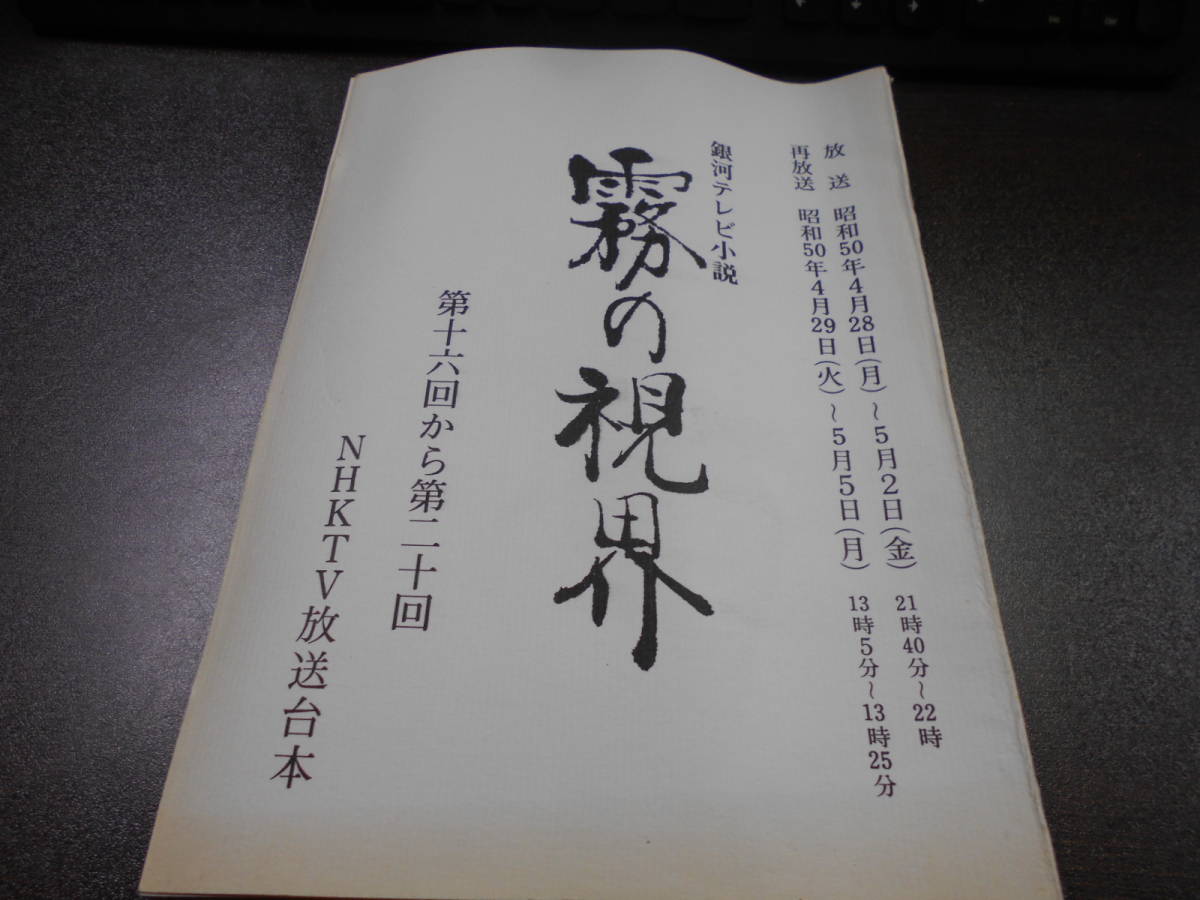 放送 昭和50年4月28日(月)~5月2日(金) 21時40分~22時
再放送 昭和50年4月29日(火)~5月5日(月) 13時5分~13時25分
銀河テレビ小説
霧の視界
第十六回から第二十回
NHKTV放送台本